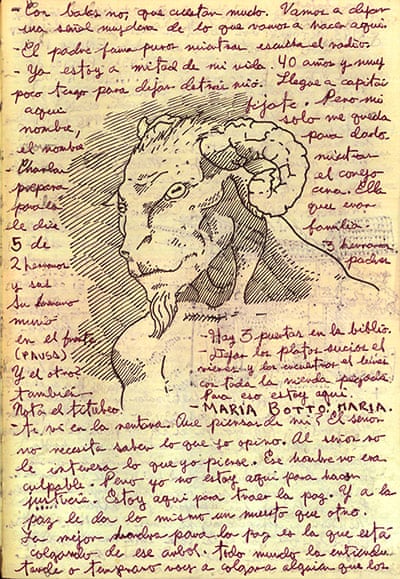 - Con balas no, que cuestan mucho. Vamos a dejar
una señal muy clara de lo que vamos a hacer aquí.
- El padre fuma puros mientras escucha el radio.
- Ya estoy a mitad de mi vida 40 años y muy
poco tengo para dejar detrás mío. Llegue a capitán
fijate. Pero mi
aquí
nombre, solo me queda
el nombre para darlo.
- Charlar mientras
prepara el conejo
para la cena. Ella
le dice que eran
5 de familia
2 hermanos 3 hermanas
y sus padres
Su hermano
murió
en el frente
(PAUSA)
Y el otro?
también
Nota el titubeo.
- Hay 3 puertas en la biblio.
- Dejar los platos sucios el
viernes y los encuentras el lunes
con toda la mierda pegada.
Para eso estoy aquí.
- MARÍA BOTTO: MARÍA.
- te vi en la ventana. Que piensas de mi? El señor
no necesita saber lo que yo opino. Al señor no
le interesa lo que yo piense. Ese hombre no era
culpable. Pero yo no estoy aquí para hacer
justicia. Estoy aquí para traer la paz. Y a la
paz le da lo mismo un muerto que otro.
La mejor para la paz es la que está
colgando de ese arbol. todo mundo la entiende
tarde o temprano voy a colgar a alguien que los